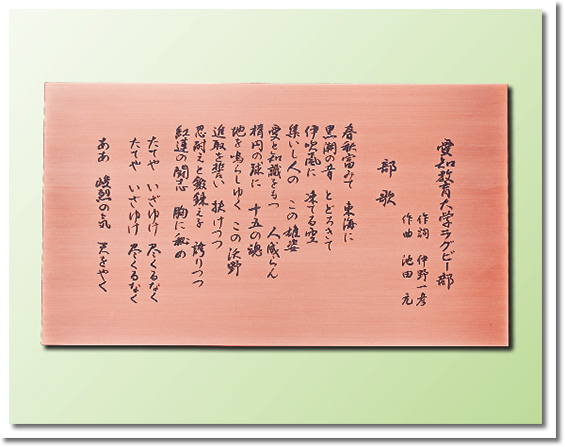 愛知教育大学ラグビー部
部歌
作詞 伊野一彦
作曲 池田元
春秋富みて 東海に
黒潮の音 とどろきて
伊吹風に 凍てる空
集いし人の この雄姿
愛と知識をもつ 人成らん
楕円の球に 十五の魂
地を鳴らしゆく この沃野
進取を誓い 扶けつつ
忍耐えと鍛錬えを 誇りつつ
紅蓮の闘志 胸に秘め
たてや いざゆけ 尽くるなく
たてや いざゆけ 尽くるなく
ああ 峻烈の気 天をやく